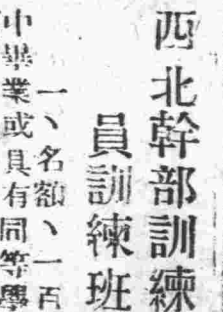 西北幹部訓練
員訓練班
一、名額、一百
中畢業或具有同等學